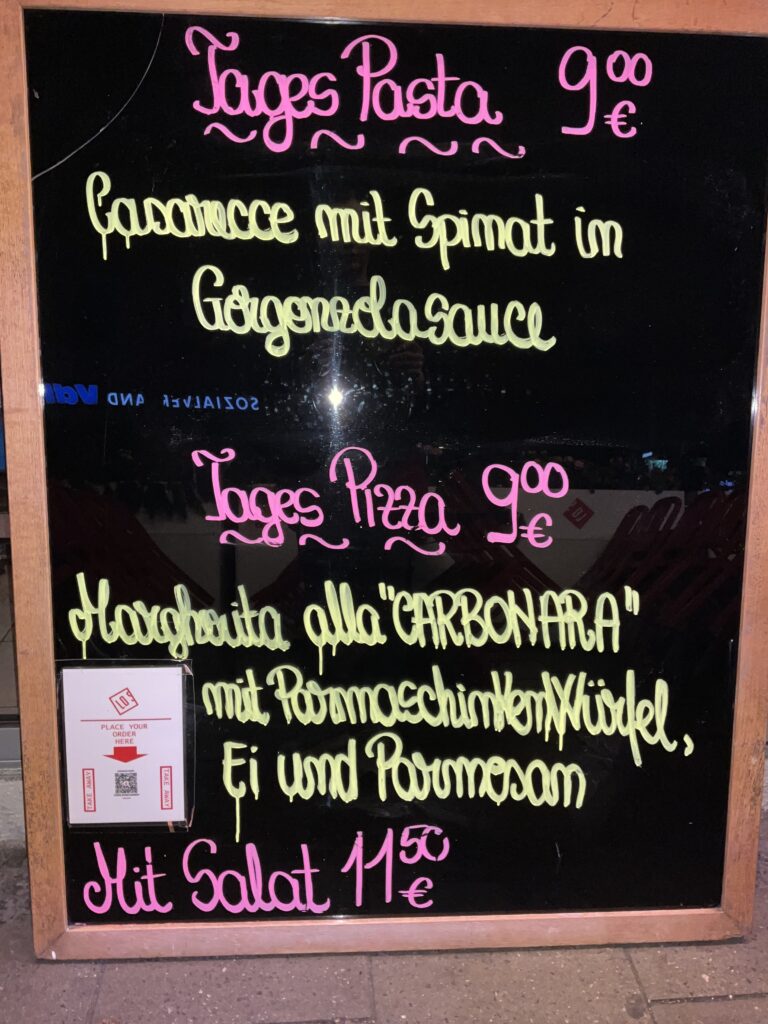 Tages Pasta 9.00 €
Casarecce mit Spinat in
Gorgonzolasauce
SOZIALVERBAND VdK
Tages Pizza 9.00 €
Margherita alla "CARBONARA"
mit Parmaschinken Würfel,
Ei und Parmesan
LO
PLACE YOUR
ORDER
HERE
TAKE AWAY
TAKE AWAY
Mit Salat 11.50 €